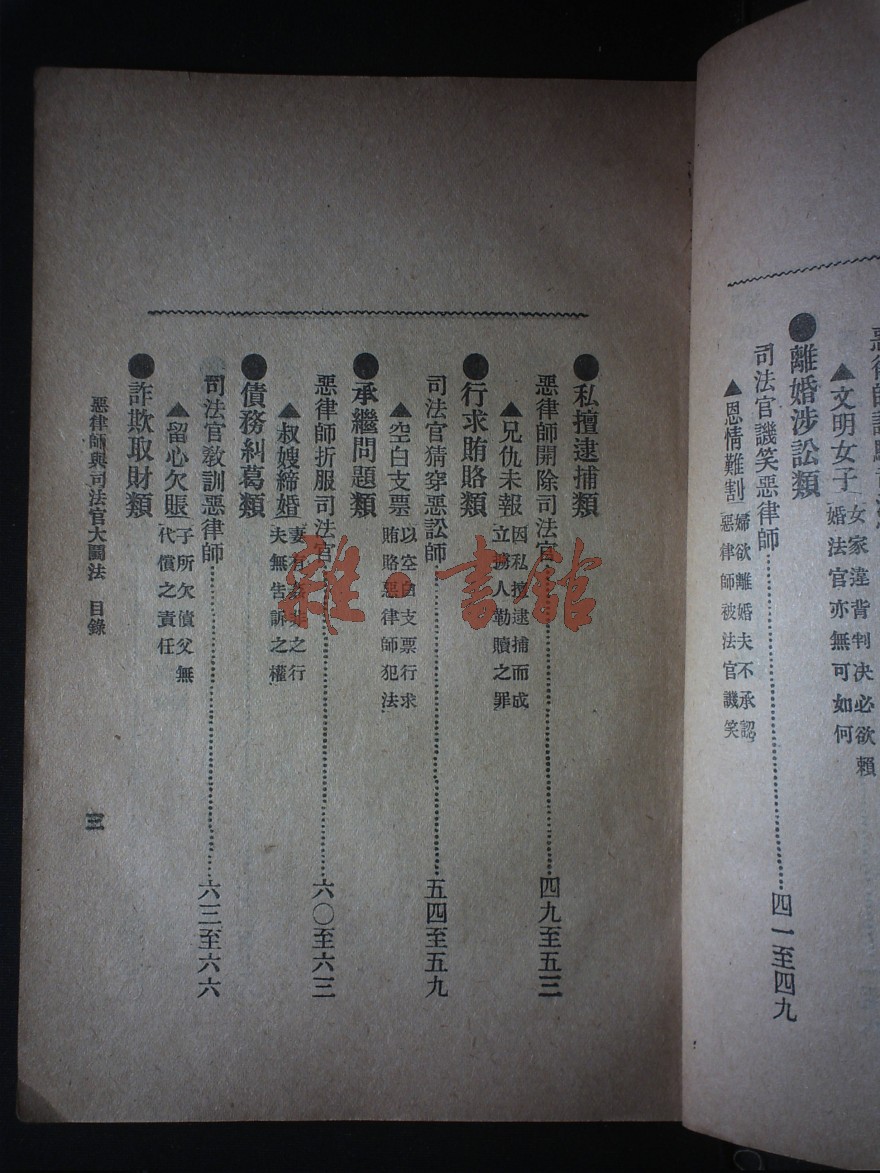 ▲文明女子
女家違背判決必欲賴
婚法官亦無可如何
●離婚涉訟類
司法官譏笑惡律師……四一至四九
▲恩情難割
婦欲離婚夫不承認
惡律師被法官譏笑
●私擅逮捕類
惡律師開除司法官……四九至五三
▲兄仇未報
因私擅逮捕而成
立擄人勒贖之罪
●行求賄賂類
司法官猜穿惡訟師……五四至五九
▲空白支票
以空白支票行求
賄賂惡律師犯法
●承繼問題類
惡律師折服司法官……六〇至六三
▲叔嫂締婚
妻有姦非之行
夫無告訴之權
●債務糾葛類
司法官教訓惡律師……六三至六六
▲留心欠賬
子所欠債父無
代償之責任
●詐欺取財類
惡律師與司法官大鬭法 目錄
三
雜·書館